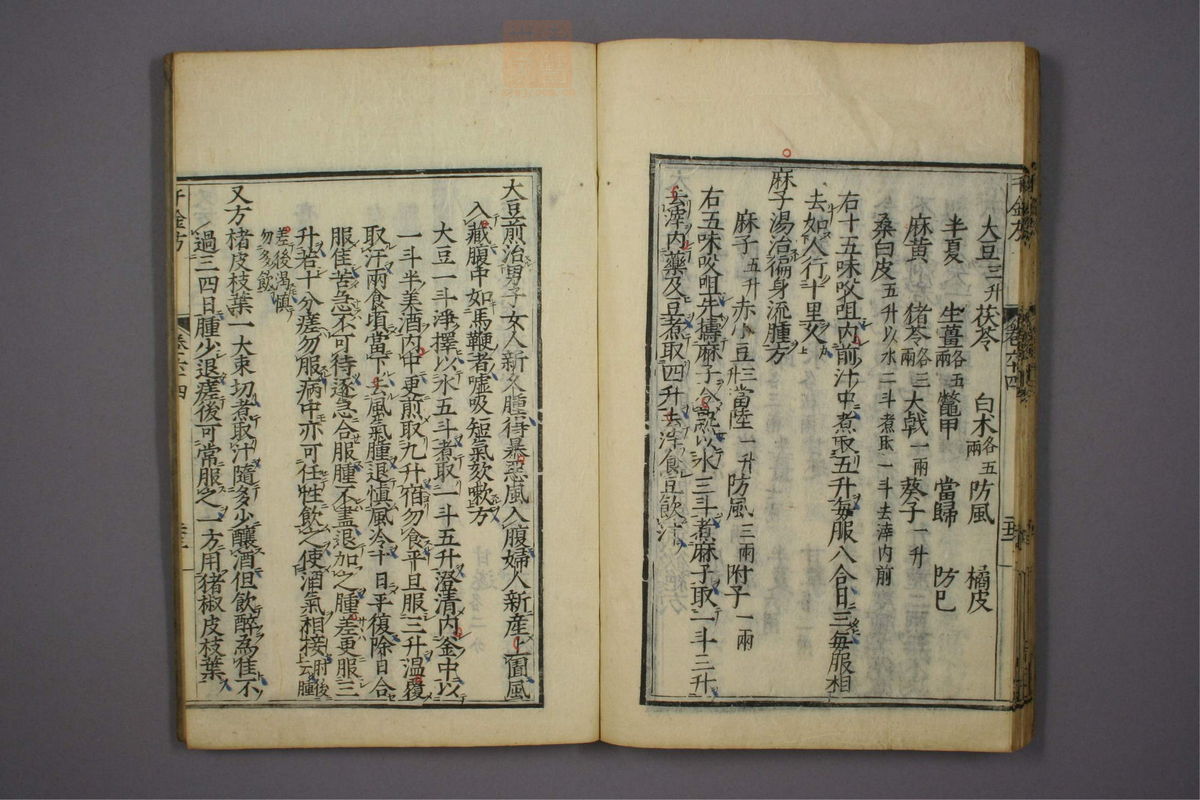 千金方
卷六十四
大豆三升 茯苓 白术各五兩 防風 橘皮
半夏 生薑各五兩 鼈甲 當歸 防巳
麻黃 猪苓各三兩 大戟一兩 葵子一升
桑白皮五升以水二斗煮取一斗去滓内前
右十五味㕮咀内前汁中煮取五升每服八合日三每服相
去如人行十里久
麻子湯治徧身流腫方
麻子五升 赤小豆三升 當陸一升 防風三兩 附子一兩
右五味㕮咀先擣麻子令熟以水三斗煮麻子取一斗三升
去滓内藥及豆煮取四升去滓食豆飲汁
大豆煎治男子女人新久腫得暴惡風入腹婦人新產上圊風
入藏腹中如馬鞭者噓吸短氣欬嗽方
大豆一斗淨擇以水五斗煮取一斗五升澄清内釜中以
一斗半美酒内中更煎取九升宿勿食平旦服三升溫覆
取汗兩食頃當下去風氣腫退慎風冷十日平復除日合
服隹苦急不可待逐急合服腫不盡退加之腫差更服三
升若十分瘥勿服病中亦可任性飲之使酒氣相接肘後云腫
差後渴慎
勿多飲
又方楮皮枝葉一大束切煮取汁隨多少釀酒但飲醉爲佳不
過三四日腫少退瘥後可常服之一方用猪椒皮枝葉
千金方